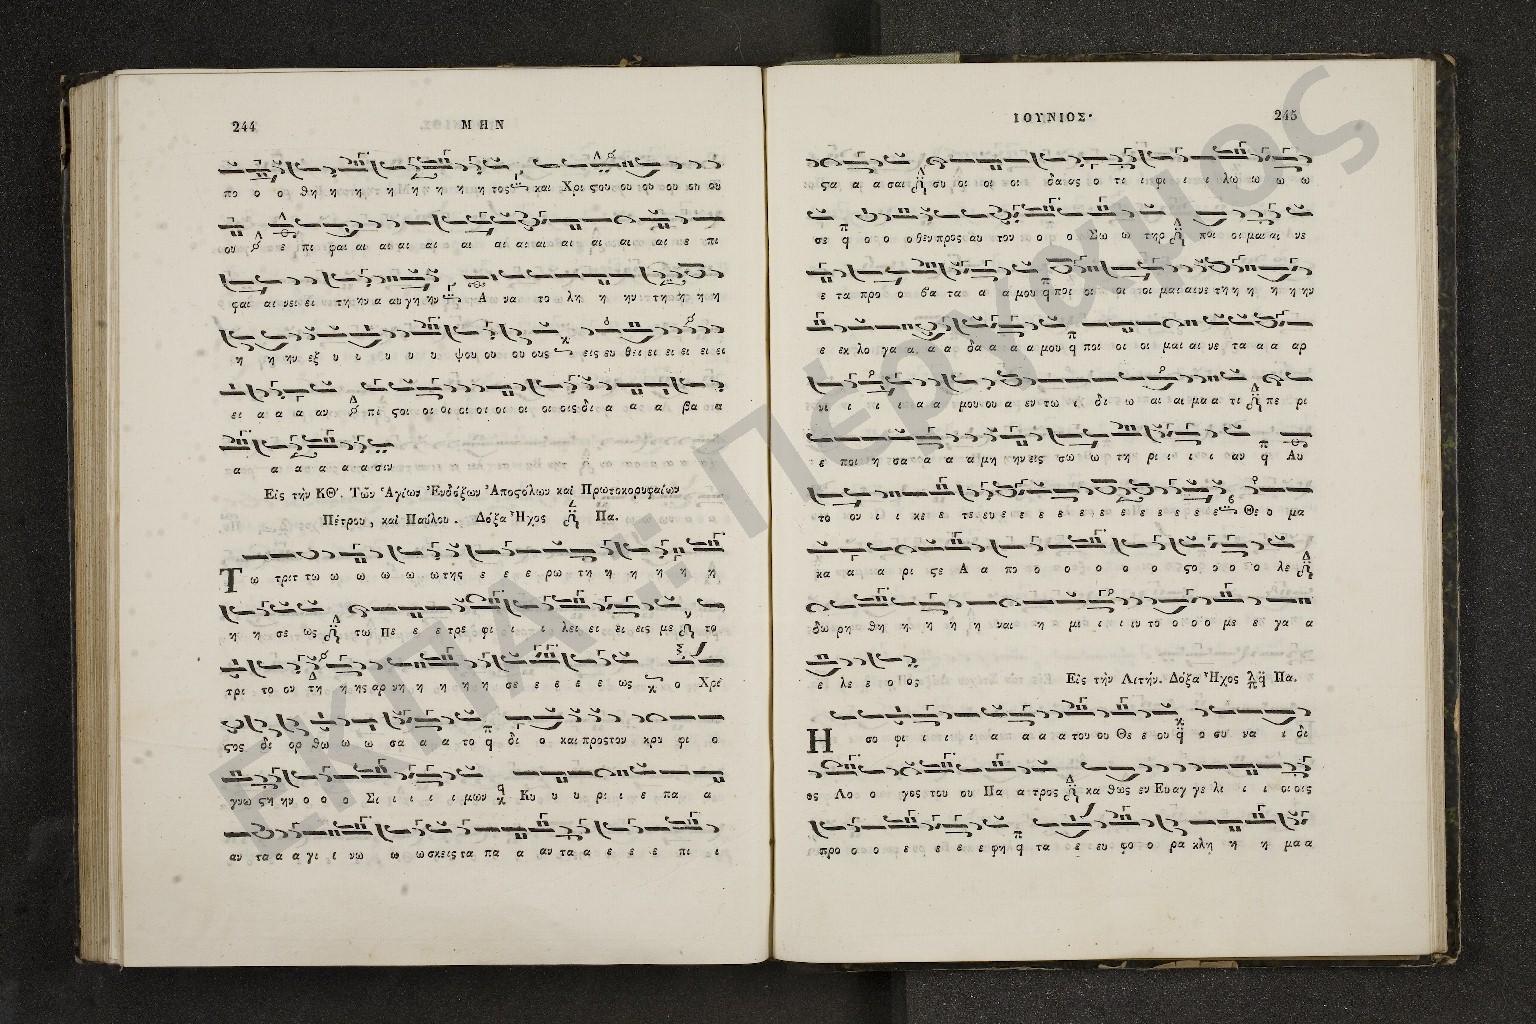 244 ΜΗΝ
πο ο ο θη η η η η η η η η τος και Χρι ςου ου ου ου ου ου
ου ε πι φαι αι αι αι αι αι αι αι αι αι αι αι αι ε πι
ςαι αι νει ει τη ην α αυ γη ην Α να το λη η ην τη η η η
η η ην εξ υ υ υ υ υ ψου ου ου ους εις ευ θει ει ει ει ει ει
ει α α α αν πι ςοι οι οι οι οι οι οι οι οις δι α α α βα α
α α α α α α σιν
Εἰς τὴν ΚΘ'. Τῶν Ἁγίων Ἐνδόξων Ἀποςόλων καὶ Πρωτοκορυφαίων
Πέτρου, καὶ Παύλου. Δόξα Ἦχος Πα.
Τω τριτ τω ω ω ω ω ω της ε ε ε ρω τη η η η η η
η η σε ως τω Πε ε ε τρε φι ι ι λει ει ει εις με το
τρι το ον τη η ης αρ νη η η η η σε ε ε ε ε ως ο Χρι
ςος δι ορ θω ω ω σα α α το δι ο και προς τον κρυ φι ο
γνω ςη ην ο ο ο Σι ι ι ι ι μων Κυ υ υ ρι ι ε πα α
αν τα α α γι ι νω ω ω σκεις τα πα α αν τα α ε ε ε πι ι
ΙΟΥΝΙΟΣ· 245
ςα α α σαι συ οι οι οι δα ας ο τι ι φι ι ι λω ω ω ω
σε ο ο ο θεν προς αυ τον ο ο Σω ω τηρ ποι οι μαι αι νε
ε τα προ ο βα τα α α μου ποι οι οι οι μαι αι νε τη η η η η ην
ε εκ λο γα α α α δα α α α μου ποι οι οι μαι αι νε τα α α αρ
νι ι ι ι α α μου ου α εν τω ι δι ω αι αι μα α τι πε ρι
ε ποι η σα α α α μη ην εις σω ω τη ρι ι ι ι αν Αυ
το ον ι ι κε ε τε ευ ε ε ε ε ε ε ε ε ε ε ε ε Θε ο μα
κα α α ρι ςε Α α πο ο ο ο ο ο ςο ο ο ο λε
δω ρη θη η η η η ναι η μι ι ι ιν το ο ο ο με ε γα α
ε λε ε ο ος Εἰς τὴν Λιτήν. Δόξα Ἦχος Πα.
Η σο φι ι ι ι α α α α του ου Θε ε ου ο συ να ι δι
ος Λο ο γος του ου Πα α τρος κα θως εν Ευ αγ γε λι ι ι οι οις
προ ο ο ε ε ε ε φη τα ε ευ φο ο ρα κλη η η μα α